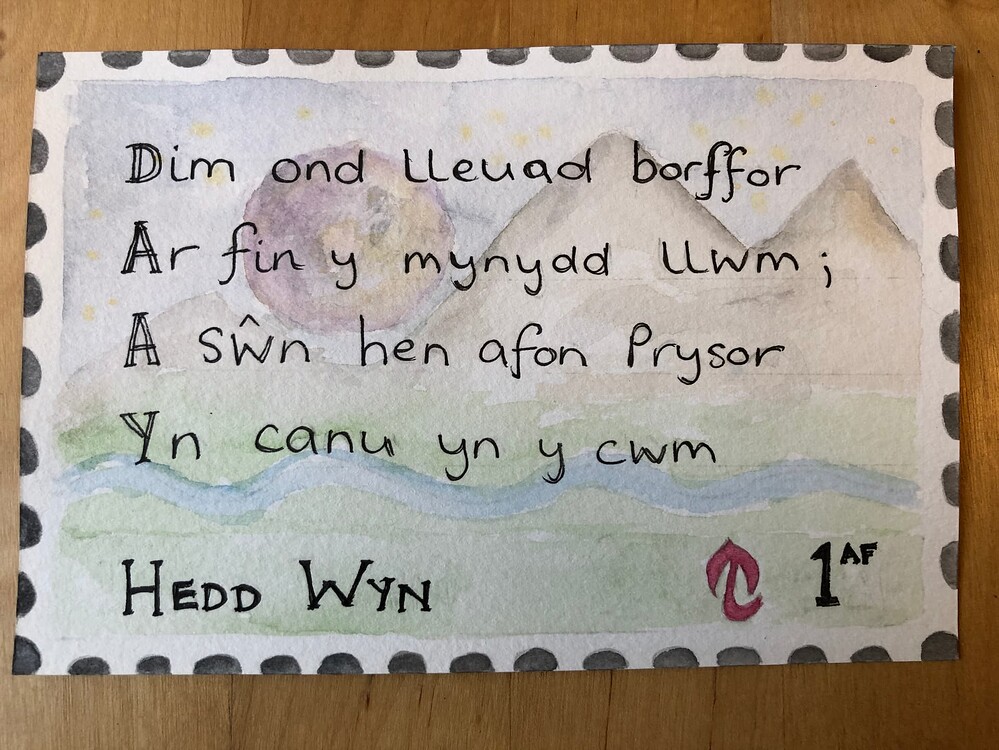 Dim ond lleuad borffor
Ar fin y mynydd llwm;
A sŵn hen afon Prysor
Yn canu yn y cwm
HEDD WYN
1AF